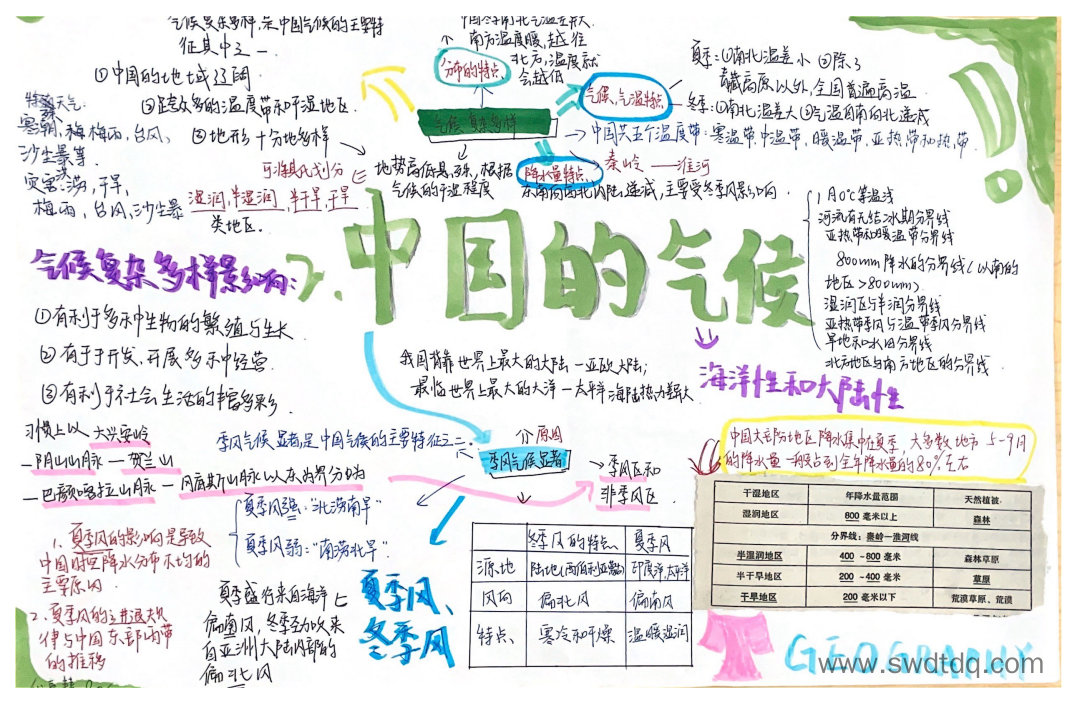 气候复杂多样,是中国气候的主要特
征其中之一.
①中国的地域辽阔
②跨众多的温度带和干湿地区.
③地形十分地多样
特殊天气:
寒潮,梅雨,台风,
沙尘暴等.
灾害:涝,干旱,
梅雨,台风,沙尘暴
可准其划分
湿润,半湿润,半干旱,干旱
类地区.
中国冬季南北气温差别大
南方温度暖,越往
北方,温度就
会越低
分布的特点
气候复杂多样
地势高低悬殊,根据
气候的干湿程度
气候、气温特点
夏季:①南北温差小 ②除了
青藏高原以外,全国普遍高温
冬季:①南北温差大②气温自南向北递减
中国共五个温度带:寒温带,中温带,暖温带,亚热带和热带.
降水量特点
秦岭——淮河
东南向西北内陆递减,主要受冬季风影响.
1月0℃等温线
河流有无结冰期分界线
亚热带和暖温带分界线
800mm降水的分界线(以南的
地区>800mm)
湿润区与半润分界线
亚热带季风与温带季风分界线
旱地和水田分界线
北方地区与南方地区的分界线
中国的气候
气候复杂多样影响:
①有利于多种生物的繁殖与生长
②有于于开发,开展多种经营
③有利于社会生活的丰富多彩
我国背靠世界上最大的大陆—亚欧大陆;
最临世界上最大的大洋—太平洋海陆热力差异大
海洋性和大陆性
习惯上以大兴安岭
—阴山山脉—贺兰山
—巴颜喀拉山脉—冈底斯山脉以东为界分为
季风气候显著是中国气候的主要特征之二
分原因
季风气候显著
季风区和
非季风区.
中国大部分地区降水集中在夏季,大多数地方5-9月
的降水量一般占到全年降水量的80%左右
夏季风强:"北涝南旱"
夏季风弱:"南涝北旱"
1.夏季风的影响是导致
中国时空降水分布不均的
主要原因
2.夏季风的主进退规
律与中国东部雨带
的推移
夏季盛行来自海洋上
偏南风,冬季劲吹来
自亚洲大陆内部的
偏北风
夏季风、
冬季风
冬季风的特点 夏季风
源地 陆地(西伯利亚蒙古) 印度洋,太平洋
风向 偏北风 偏南风
特点 寒冷和干燥 温暖湿润
干湿地区 年降水量范围 天然植被
湿润地区 800毫米以上 森林
分界线:秦岭—淮河线
半湿润地区 400~800毫米 森林草原
半干旱地区 200~400毫米 草原
干旱地区 200毫米以下 荒漠草原、荒漠
GEOGRAPHY
www.swdtdq.com